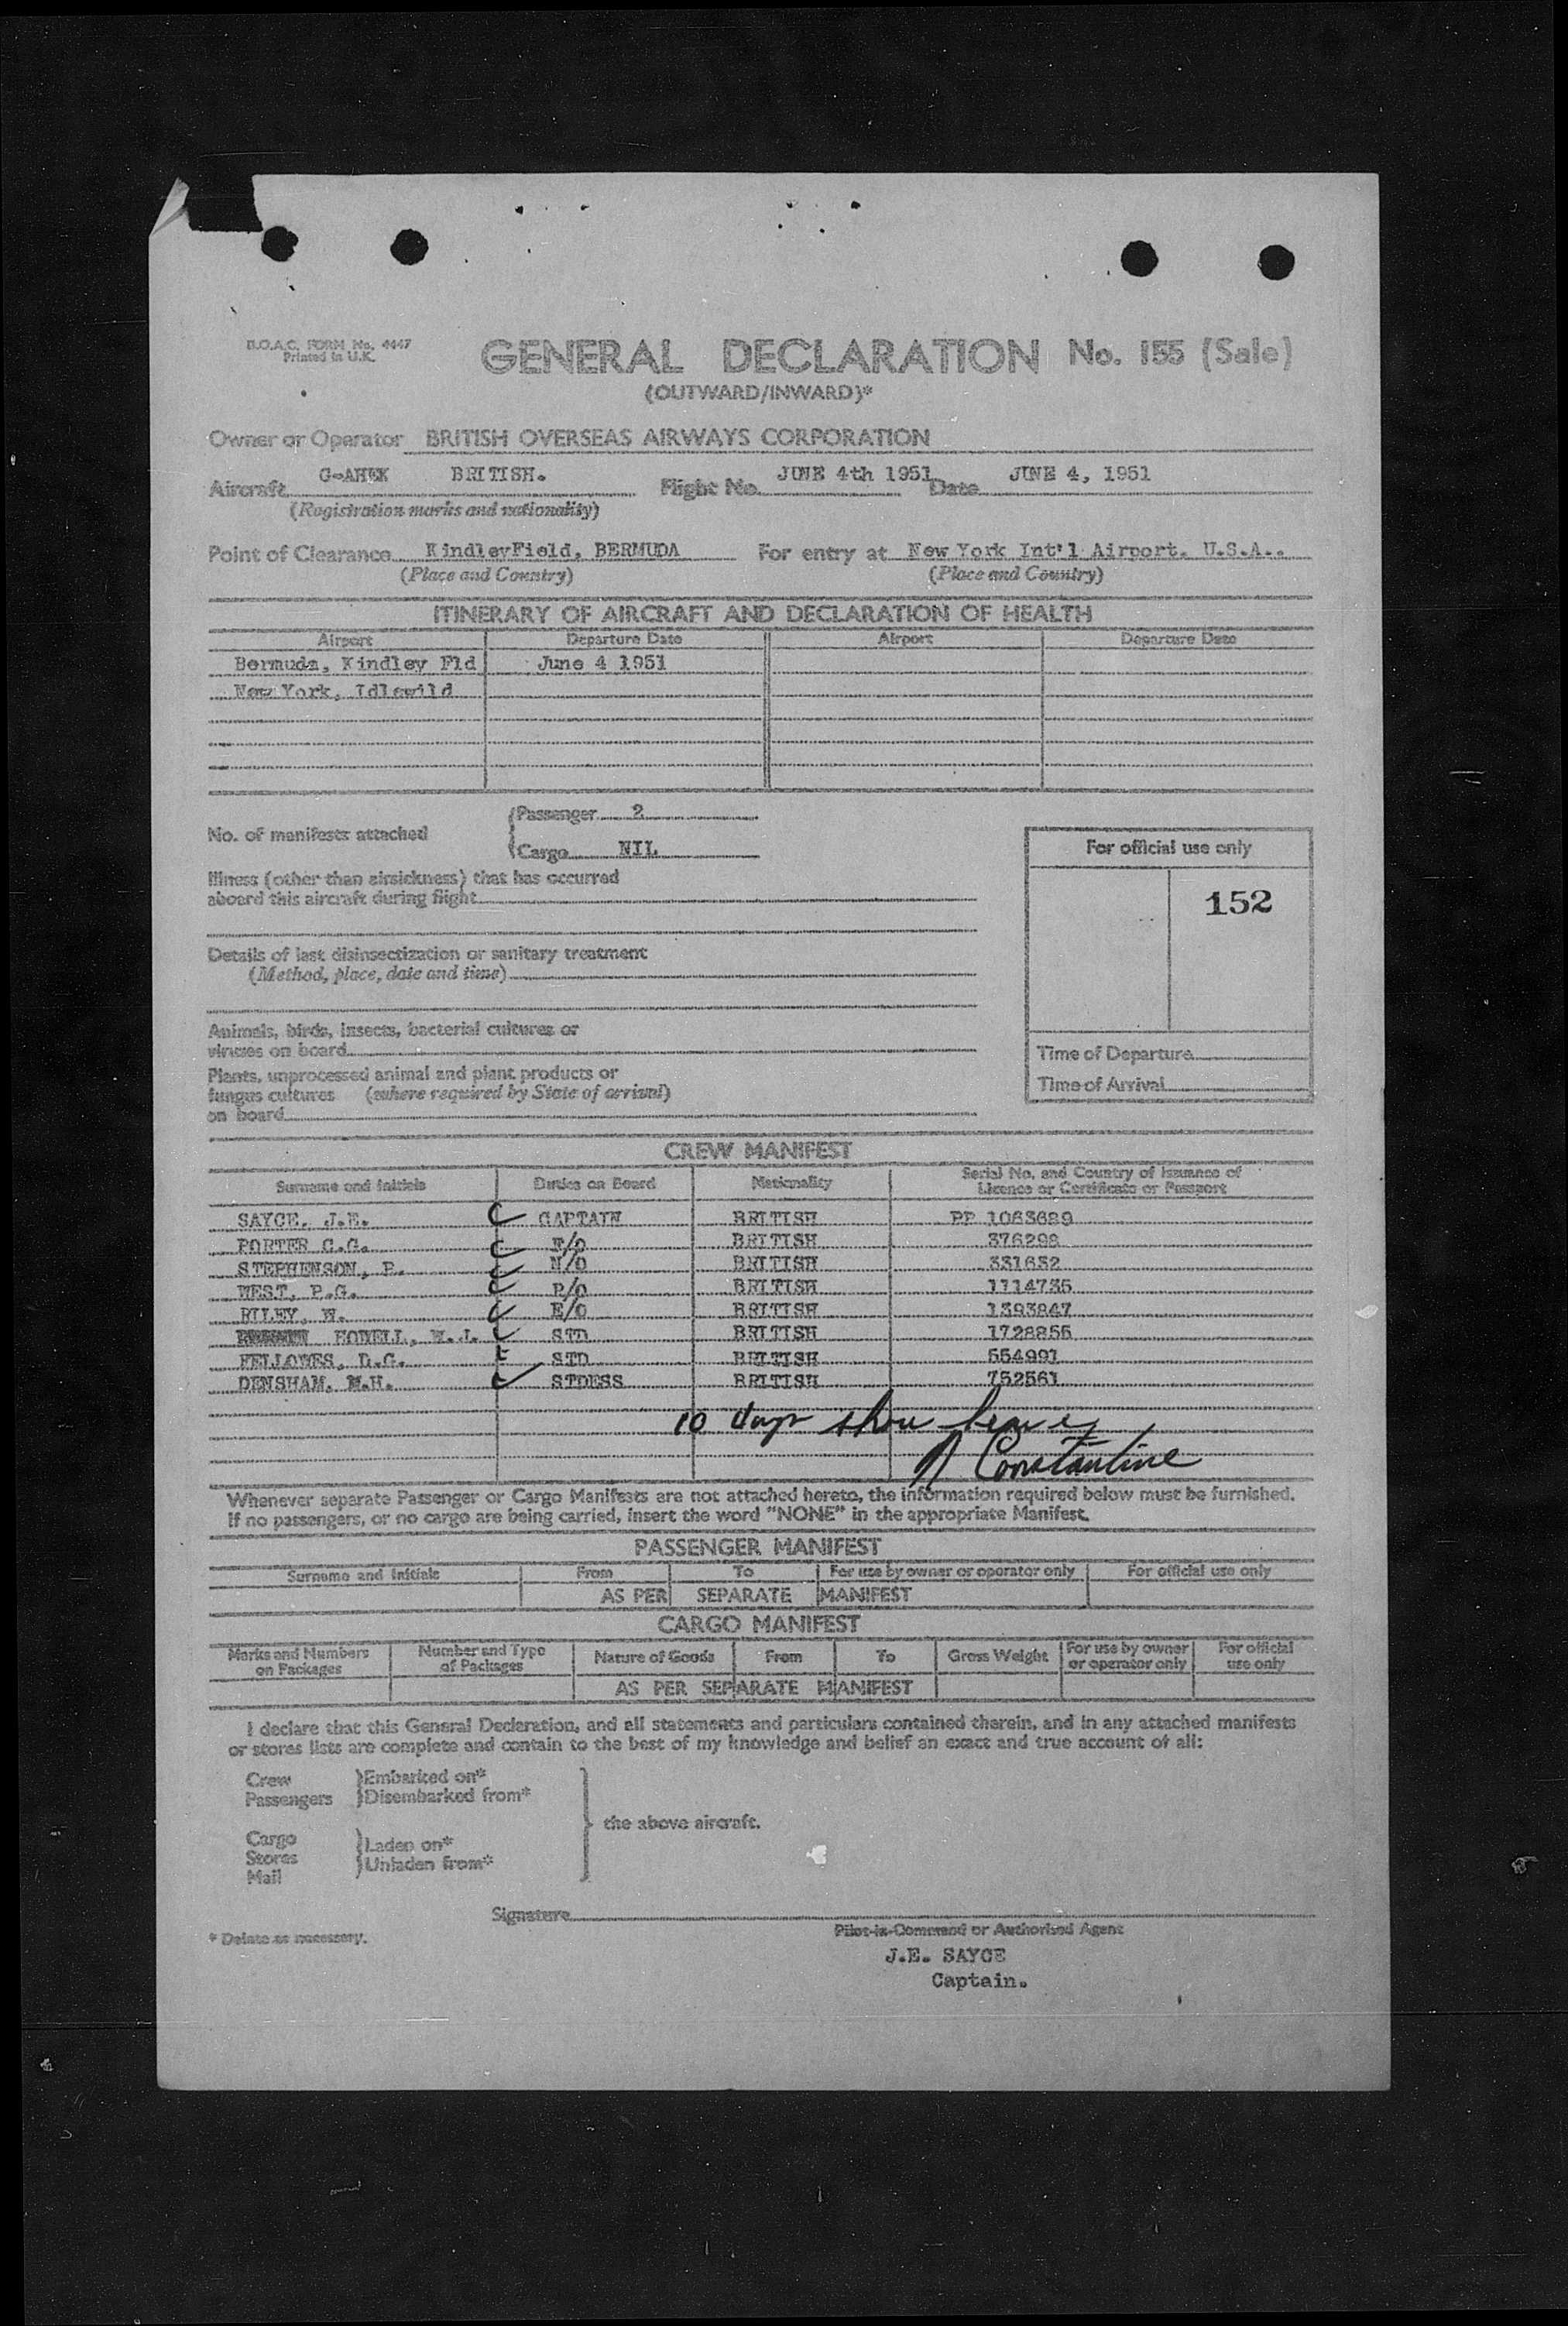 B.O.A.C. FORM No. 4447
Printed in U.K.
GENERAL DECLARATION No. 155 (Sale)
(OUTWARD/INWARD)*
Owner or Operator BRITISH OVERSEAS AIRWAYS CORPORATION
Aircraft G-AHEK BRITISH. Flight No. JUNE 4th 1951 Date JUNE 4, 1951
(Registration marks and nationality)
Point of Clearance KindleyField, BERMUDA For entry at New York Int'l Airport. U.S.A..
(Place and Country) (Place and Country)
ITINERARY OF AIRCRAFT AND DECLARATION OF HEALTH
Airport Departure Date Airport Departure Date
Bermuda, Kindley Fld June 4 1951
New York, Idlewild
Passenger 2
No. of manifests attached
Cargo NIL
For official use only
Illness (other than airsickness) that has occurred
aboard this aircraft during flight
152
Details of last disinsectization or sanitary treatment
(Method, place, date and time)
Animals, birds, insects, bacterial cultures or
viruses on board
Time of Departure
Plants, unprocessed animal and plant products or
fungus cultures (where required by State of arrival)
on board
Time of Arrival
CREW MANIFEST
Surname and Initials Duties on Board Nationality Serial No. and Country of Issuance of
Licence or Certificate or Passport
SAYCE, J.E. CAPTAIN BRITISH PP 1063689
PORTER C.G. F/O BRITISH 376298
STEPHENSON, P. N/O BRITISH 331632
WEST, P.G. P/O BRITISH 1114735
RILEY, W. E/O BRITISH 1393847
HODELL, W.J. STD BRITISH 1728855
FELLOWES, D.G. STD BRITISH 554991
DENSHAM, M.H. STDESS BRITISH 752561
10 days shore leave
N Constantine
Whenever separate Passenger or Cargo Manifests are not attached hereto, the information required below must be furnished.
If no passengers, or no cargo are being carried, insert the word "NONE" in the appropriate Manifest.
PASSENGER MANIFEST
Surname and Initials From To For use by owner or operator only For official use only
AS PER SEPARATE MANIFEST
CARGO MANIFEST
Marks and Numbers on Packages Number and Type of Packages Nature of Goods From To Gross Weight For use by owner or operator only For official use only
AS PER SEPARATE MANIFEST
I declare that this General Declaration, and all statements and particulars contained therein, and in any attached manifests
or stores lists are complete and contain to the best of my knowledge and belief an exact and true account of all:
Crew Embarked on*
Passengers Disembarked from*
the above aircraft.
Cargo Laden on*
Stores Unladen from*
Mail
Signature
Pilot-in-Command or Authorised Agent
* Delete as necessary.
J.E. SAYCE
Captain.